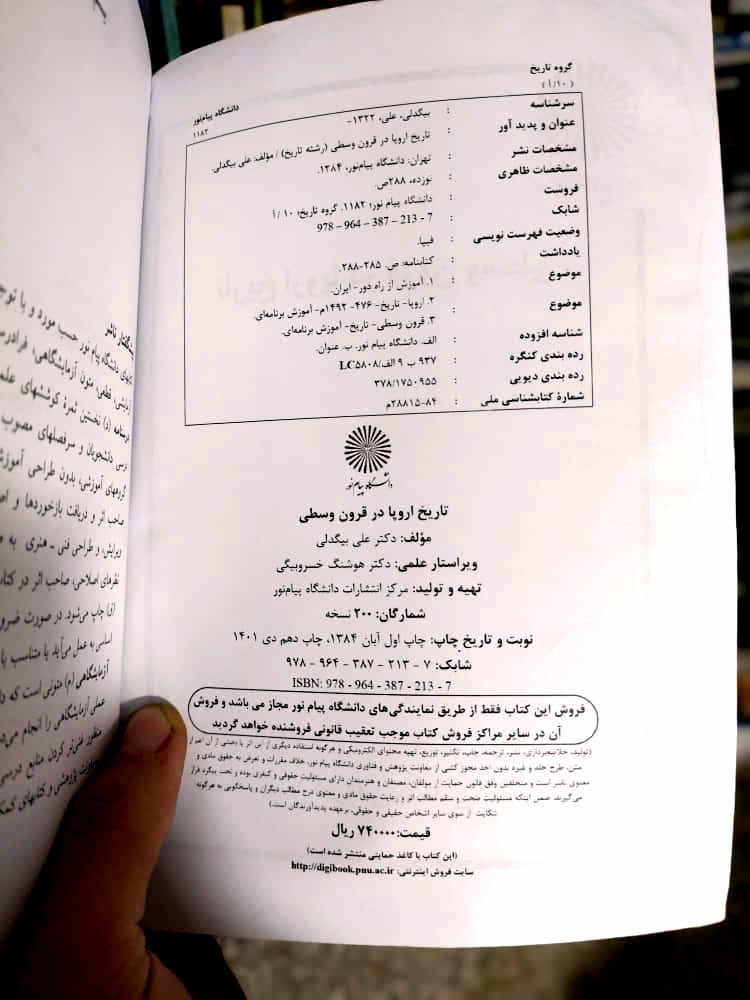 گروه تاریخ
(۱۰/أ)
دانشگاه پیام‌نور
۱۱۸۲
سرشناسه : بیگدلی، علی، ۱۳۲۲-
عنوان و پدید آور : تاریخ اروپا در قرون وسطی (رشته تاریخ) / مؤلف: علی بیگدلی.
مشخصات نشر : تهران: دانشگاه پیام‌نور، ۱۳۸۴.
مشخصات ظاهری : نوزده، ۲۸۸ص.
فروست : دانشگاه پیام نور؛ ۱۱۸۲. گروه تاریخ؛ ۱۰ /أ
شابک : 978 – 964 – 387 – 213 - 7
وضعیت فهرست نویسی : فیپا.
یادداشت : کتابنامه: ص. ۲۸۵-۲۸۸.
موضوع : ۱. آموزش از راه دور- ایران.
موضوع : ۲. اروپا- تاریخ- ۴۷۶- ۱۴۹۲م- آموزش برنامه‌ای.
۳. قرون وسطی- تاریخ- آموزش برنامه‌ای.
شناسه افزوده : الف. دانشگاه پیام نور. ب. عنوان.
رده بندی کنگره : ۹۳۷ ب ۹ الف/LC۵۸۰۸
رده بندی دیویی : ۳۷۸/۱۷۵۰۹۵۵
شمارهٔ کتابشناسی ملی : ۸۴-۲۸۸۱۵م
دانشگاه پیام‌نور
تاریخ اروپا در قرون وسطی
مؤلف: دکتر علی بیگدلی
ویراستار علمی: دکتر هوشنگ خسروبیگی
تهیه و تولید: مرکز انتشارات دانشگاه پیام‌نور
شمارگان: ۲۰۰ نسخه
نوبت و تاریخ چاپ: چاپ اول آبان ۱۳۸۴، چاپ دهم دی ۱۴۰۱
شابک: ۷ - ۲۱۳ - ۳۸۷ - ۹۶۴ - ۹۷۸
ISBN: 978 - 964 - 387 - 213 - 7
فروش این کتاب فقط از طریق نمایندگی‌های دانشگاه پیام نور مجاز می باشد و فروش
آن در سایر مراکز فروش کتاب موجب تعقیب قانونی فروشنده خواهد گردید
(تولید، خلاصه‌برداری، نشر، ترجمه، چاپ، تکثیر، توزیع، تهیه محتوای الکترونیکی و هرگونه استفاده دیگری از این اثر یا بخشی از آن اعم از
متن، طرح جلد و غیره بدون اخذ مجوز کتبی از معاونت پژوهش و فناوری دانشگاه پیام نور، خلاف مقررات و تعرض به حقوق مادی و
معنوی ناشر است و متخلفین وفق قانون حمایت از مولفان، مصنفان و هنرمندان دارای مسئولیت حقوقی و کیفری بوده و تحت پیگرد قرار
می‌گیرند. ضمن اینکه مسئولیت صحت و سقم مطالب اثر و رعایت حقوق مادی و معنوی درج مطالب دیگران و پاسخگویی به هرگونه
شکایت از سوی سایر اشخاص حقیقی و حقوقی، برعهده پدیدآورندگان است.)
قیمت: ۷۴۰۰۰۰ ریال
(این کتاب با کاغذ حمایتی منتشر شده است)
سایت فروش اینترنتی: http://digibook.pnu.ac.ir
پیشگفتار ناشر
کتابهای دانشگاه پیام نور حسب مورد و با توج
آزمایشی، قطعی، متون آزمایشگاهی، فرادرسی
درسنامه (د) نخستین ثمرهٔ کوششهای علم
درسی دانشجویان و سرفصلهای مصوب
گروههای آموزشی، بدون طراحی آموزش
صاحب اثر و دریافت بازخوردها و اص
ویرایش، و طراحی فنی ـ هنری به ص
نظرهای اصلاحی، صاحب اثر در کتاب
(ق) چاپ می‌شود. در صورت ضرو
اساسی به عمل می‌آید یا متناسب با
آزمایشگاهی (م) متونی است که دا
عملی آزمایشگاهی را انجام می‌ده
منظور غنی‌تر کردن منابع درسی
معاونت پژوهش و کتابهای کمک